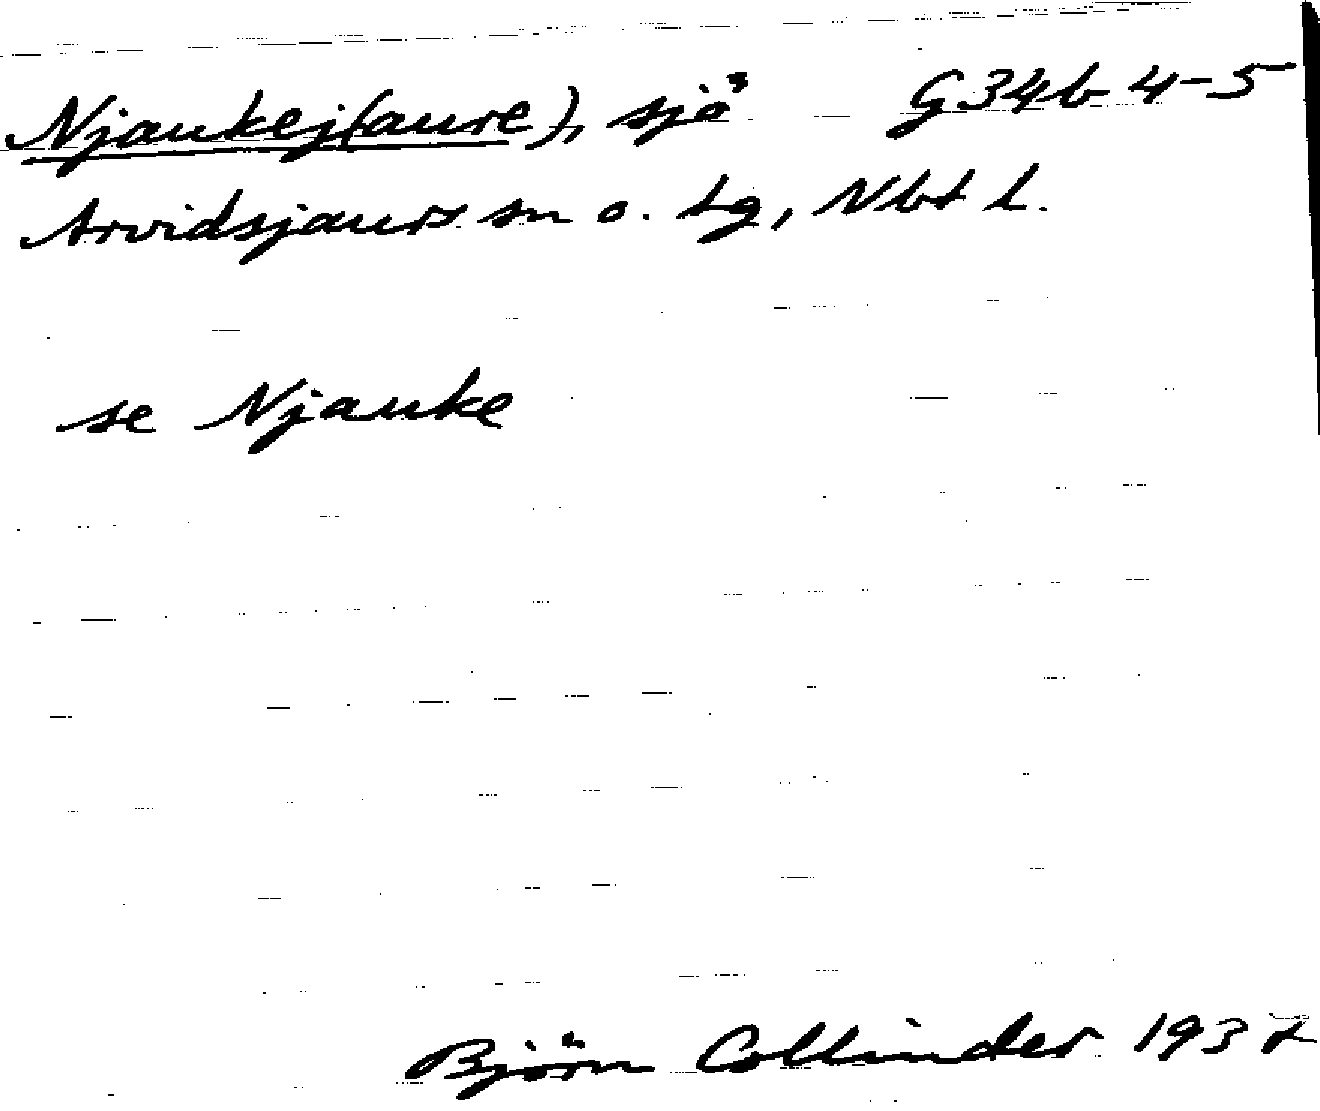 Njaukej(aure), sjö G34b 4-5
Arvidsjaurs sn o. tg, Nbt l.
se Njauke
Björn Collinder 193